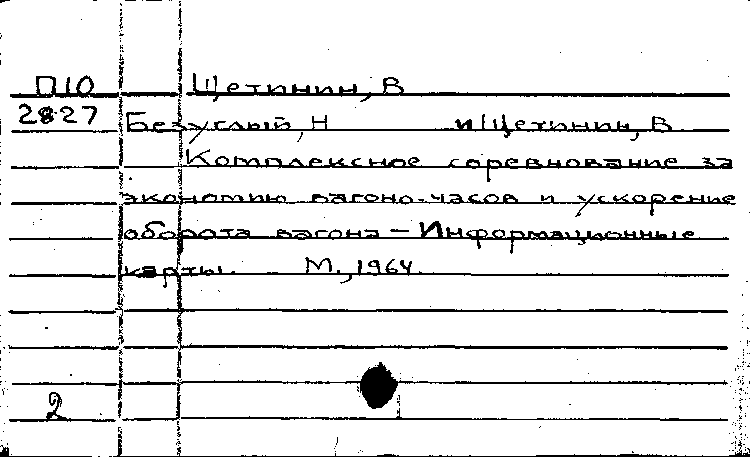 П10 Щетинин, В
2827 Безуглый, Н и Щетинин, В.
Комплексное соревнование за
экономию вагоно-часов и ускорение
оборота вагона – Информационные
карты. М., 1964.
2